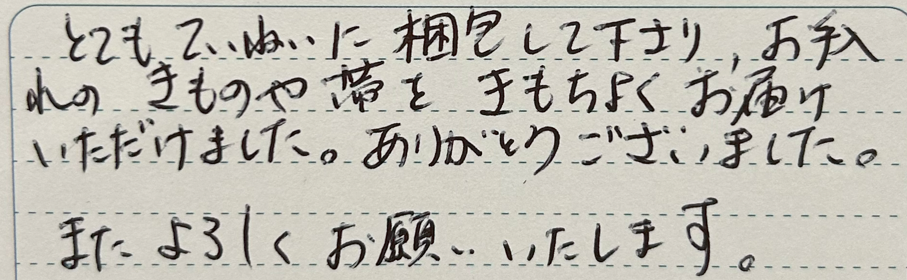 とてもていねいに梱包して下さり、お手入
れの きものや帯を きもちよく お届け
いただけました。ありがとうございました。
また よろしく お願い いたします。